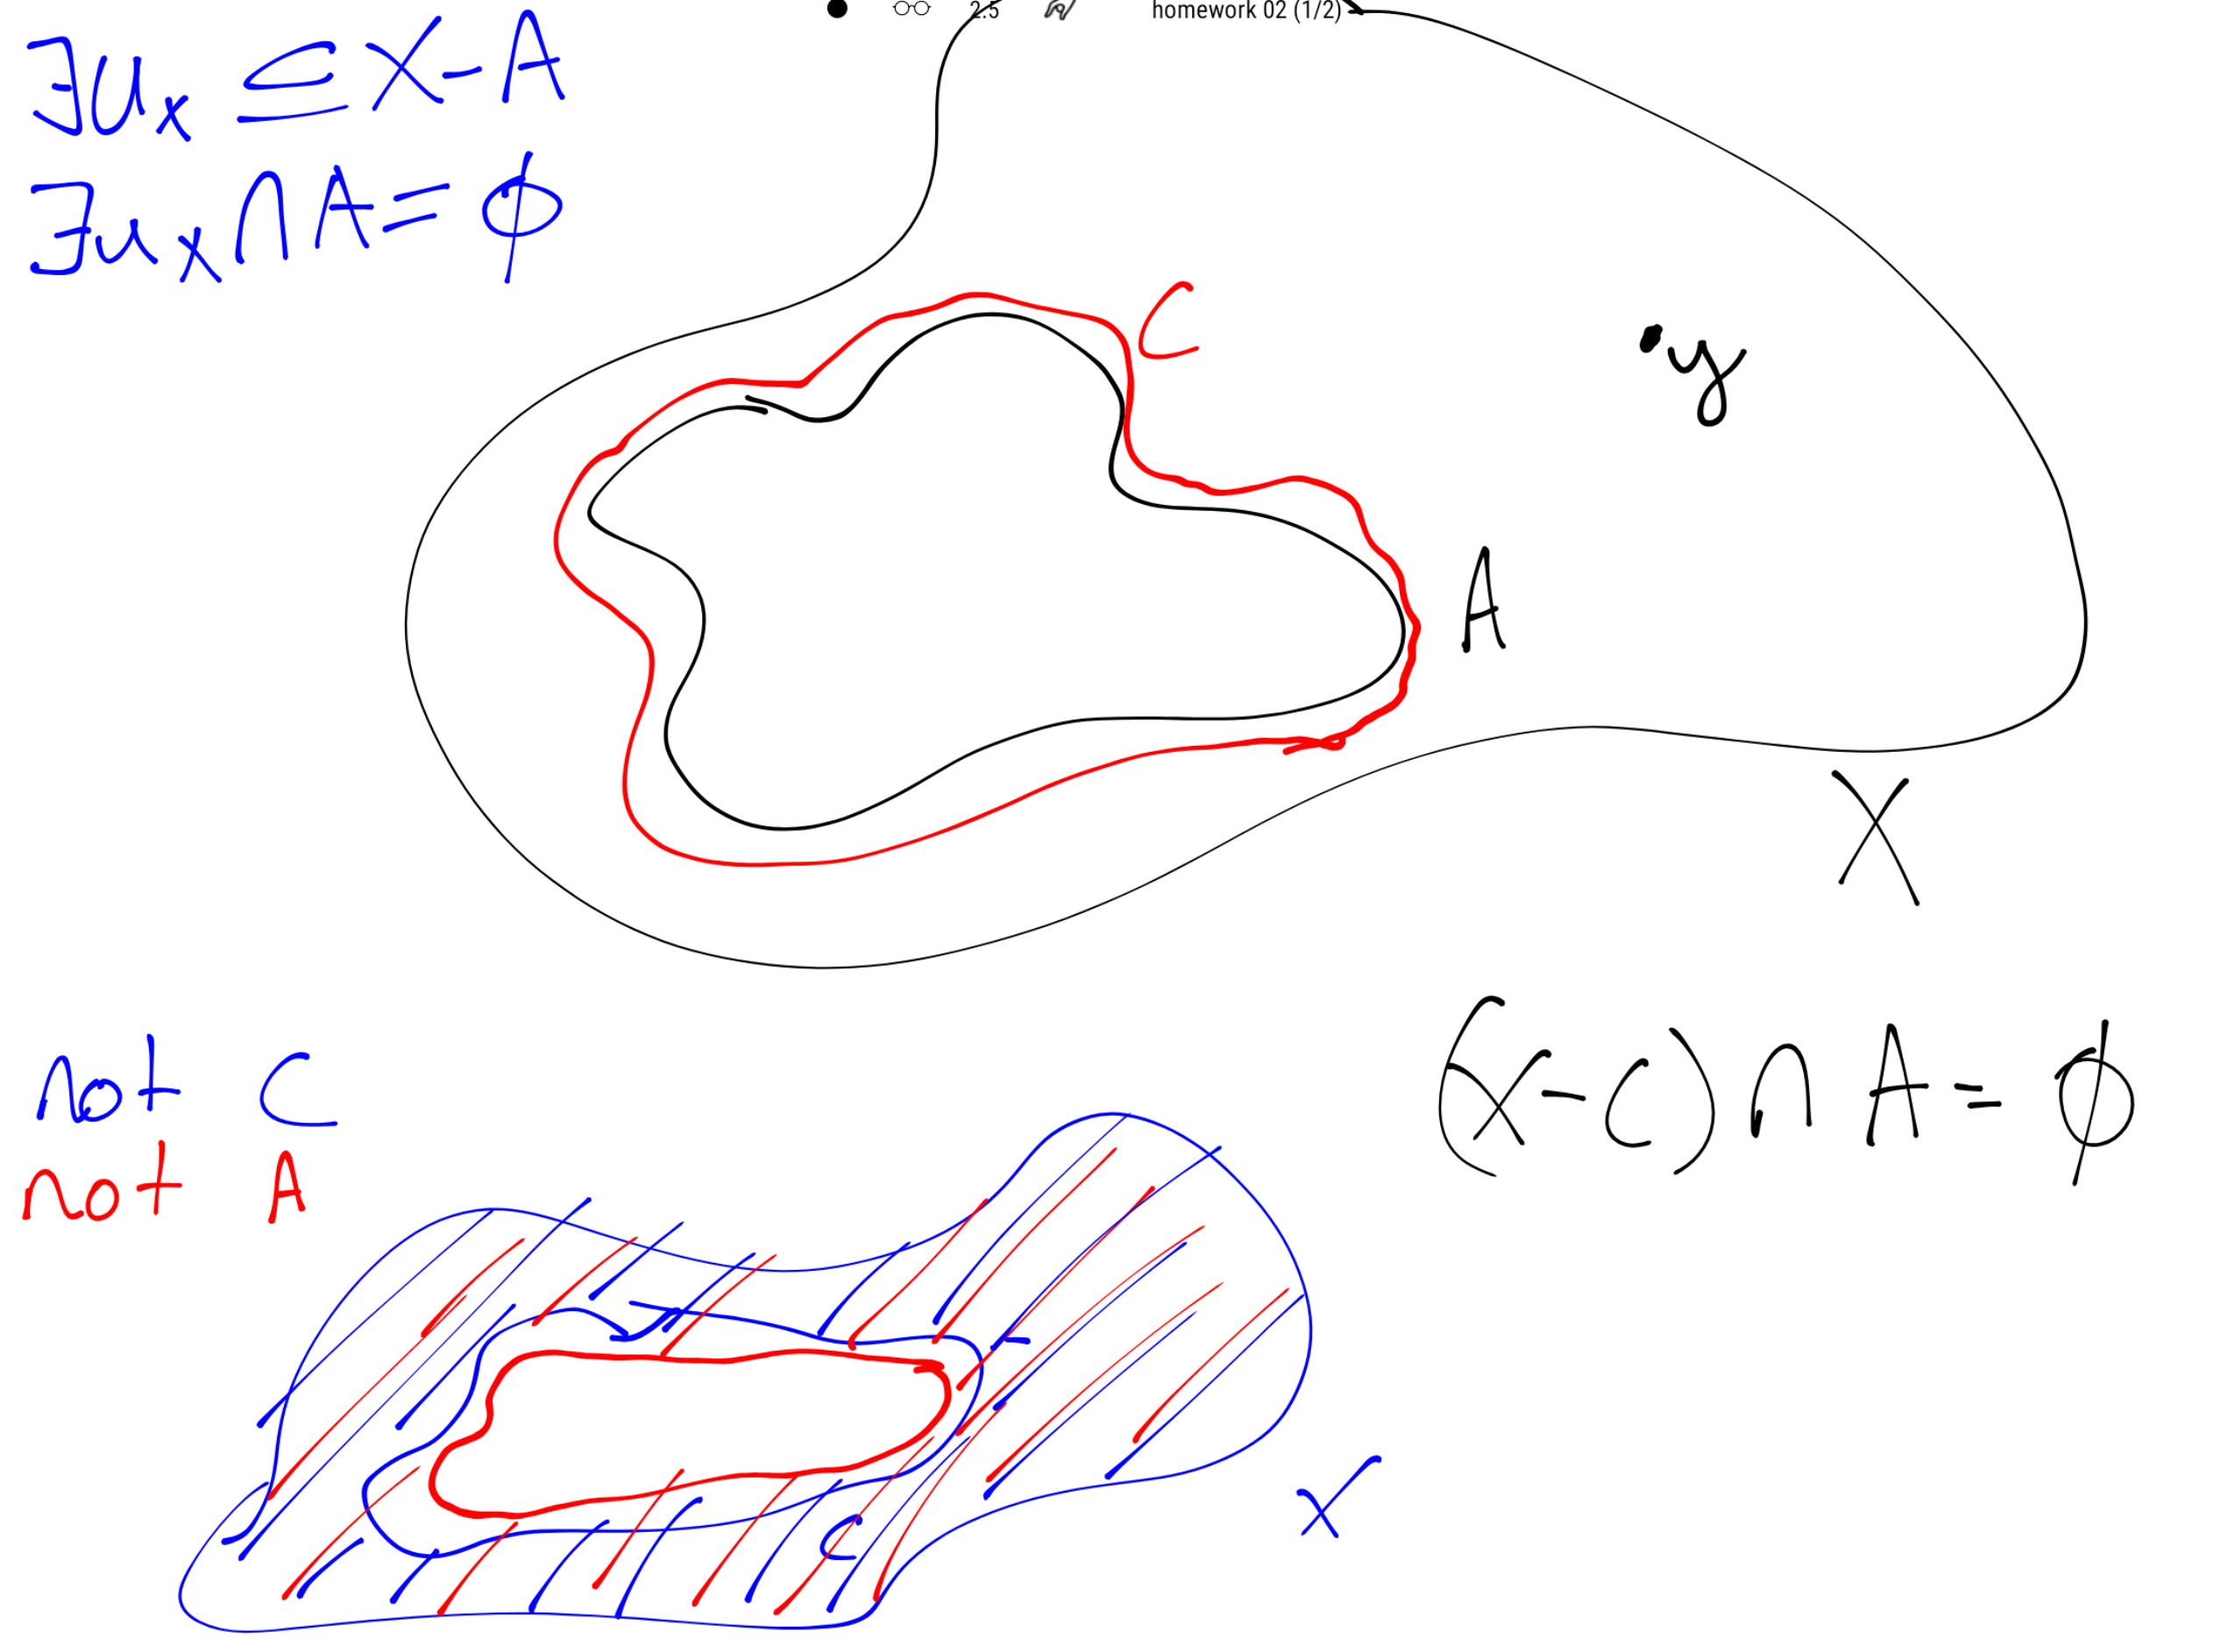 2.5 homework 02 (1/2)
∃Uₓ ⊆ X-A
∃uₓ∩A=ϕ
C
y
A
X
(x-c)∩A=ϕ
not C
not A
C
x